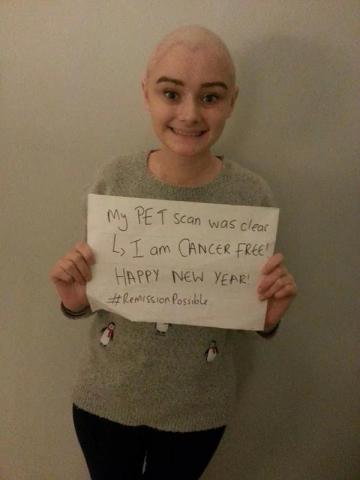 My PET scan was clear
↳ I am CANCER FREE!
HAPPY NEW YEAR!
#RemissionPossible